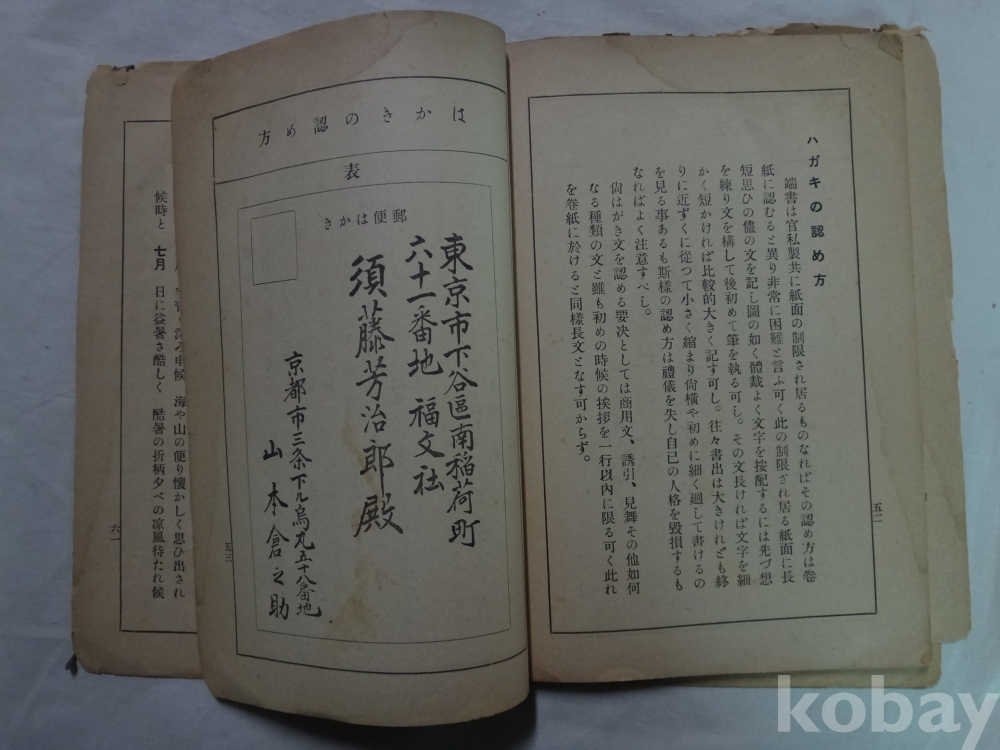 ハガキの認め方
端書は官私製共に紙面の制限され居るものなればその認め方は卷
紙に認むると異り非常に困難と言ふ可く此の制限され居る紙面に長
短思ひの儘の文を記し圖の如く體裁よく文字を按配するには先づ想
を練り文を構して後初めて筆を執る可し。その文長ければ文字を細
かく短かければ比較的大きく記す可し。往々書出は大きけれども終
りに近ずくに從つて小さく縮まり尙橫や初めに細く廻して書けるの
を見る事あるも斯樣の認め方は禮儀を失し自己の人格を毀損するも
なればよく注意すべし。
尙はがき文を認める要決としては商用文、誘引、見舞その他如何
なる種類の文と雖も初めの時候の挨拶を一行以內に限る可く此れ
を卷紙に於けると同樣長文となす可からず。
五二
はかきの認め方
表
郵便はかき
東京市下谷區南稲荷町
六十一番地 福文社
須藤芳治郎殿
京都市三条下ル烏丸五十八番地
山本倉之助
五三
申候 海や山の便り懷かしく思ひ出され
候時と 七月 日に益暑さ酷しく 酷暑の折柄夕べの凉風待たれ候
六一
kobay